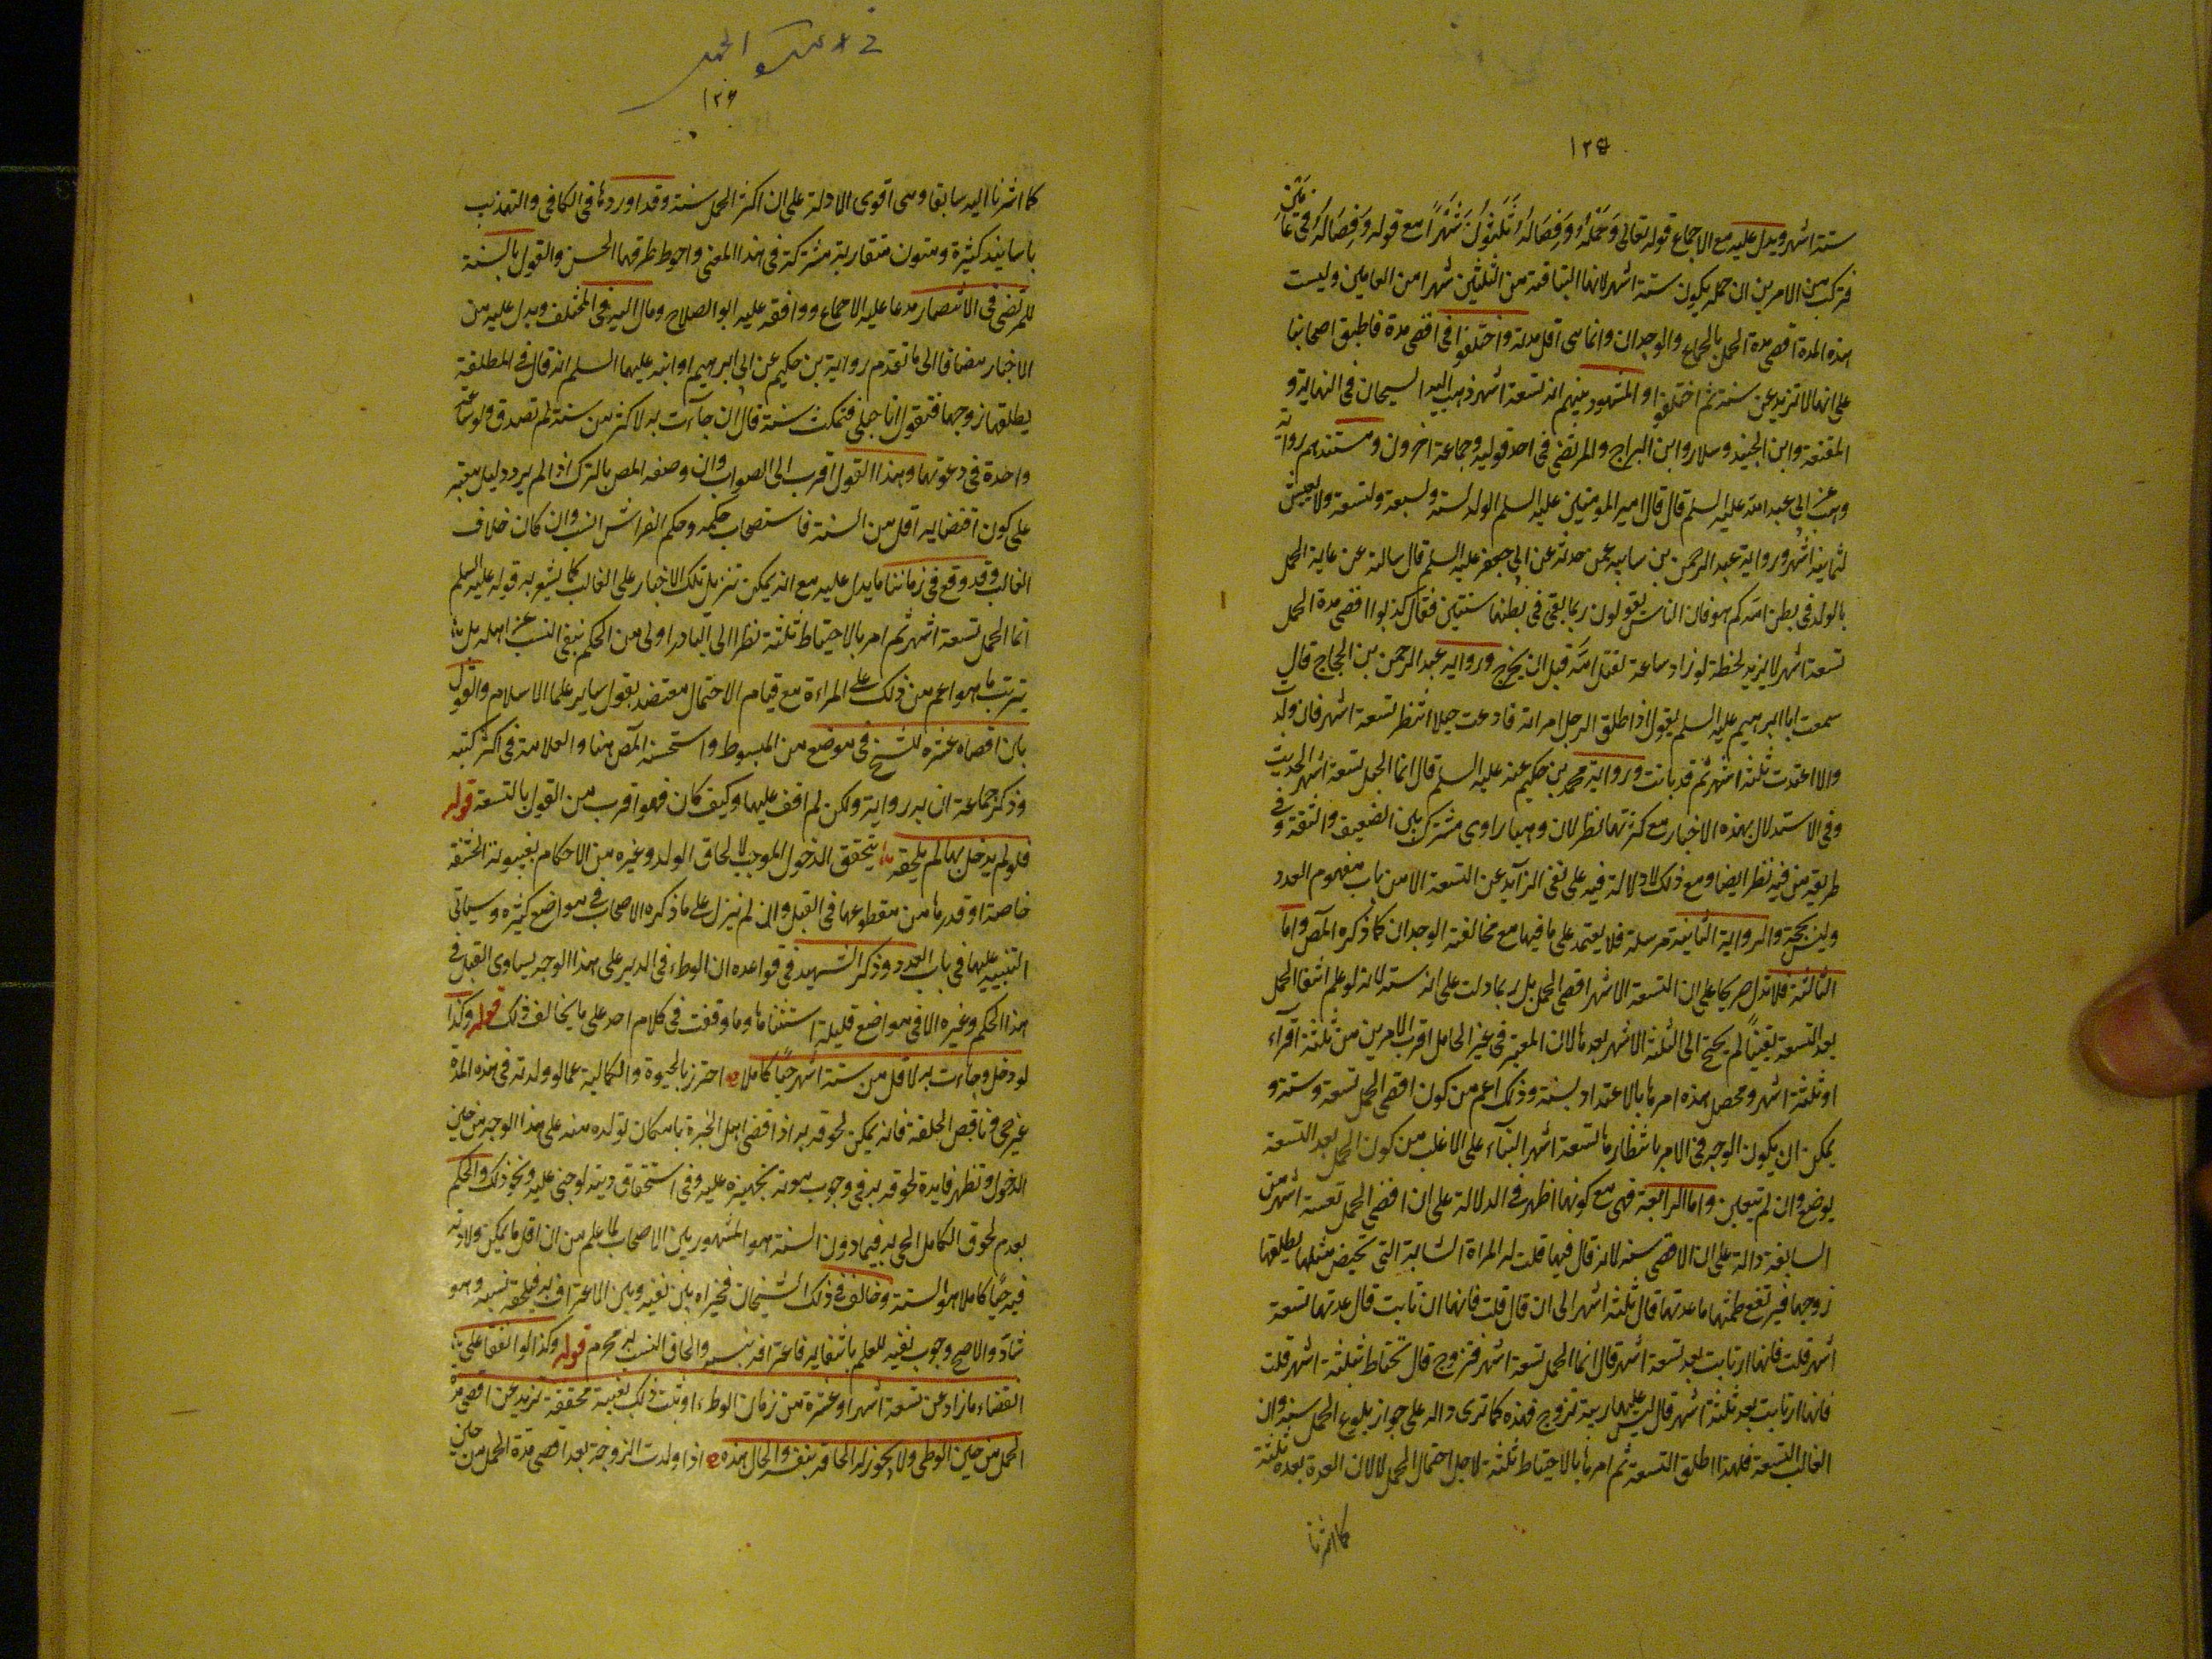 ١٢٥
ستة اشهر ويدل عليه مع الاجماع قوله تعالى وَحَمْلُهُ وَفِصَالُهُ ثَلٰثُونَ شَهْرًا مع قوله وَفِصَالُهُ فِي عَامَيْنِ
فتركب من الامرين ان حمله يكون ستة اشهر لانها الباقية من الثلثين شهرا من العاملين وليست
هذه المدة اقصى مدة الحمل بالاجماع والوجدان وانما هى اقل مدته واختلفوا فى اقصى مدة فاطبق اصحابنا
على انها لا تزيد عن سنة ثم اختلفوا والمشهور بينهم انه تسعة اشهر ذهب اليه الشيخان فى النهاية و
المقنعة وابن الجنيد وسلار وابن البراج والمرتضى فى احد قوليه وجماعة اخرون ومستندهم رواية
وهب عن ابى عبد الله عليه السلم قال قال امير المومنين عليه السلم الولد لستة ولسبعة ولتسعة ولا يعيش
لثمانية اشهر ورواية عبد الرحمن بن سيابه عمن حدثه عن ابى جعفر عليه السلم قال سالته عن غاية الحمل
بالولد فى بطن امه كم هو فان الناس يقولون ربما بقى فى بطنها سنتين فقال كذبوا اقصى مدة الحمل
تسعة اشهر لا يزيد لحظة لو زاد ساعة لقتل امه قبل ان يخرج ورواية عبد الرحمن بن الحجاج قال
سمعت ابا ابرهيم عليه السلم يقول اذا طلق الرجل امراته فادعت حبلا انتظر تسعة اشهر فان ولدت
والا اعتدت ثلثة اشهر ثم قد بانت ورواية محمد بن حكيم عنه عليه السلم قال انما الحبل تسعة اشهر الحديث
وفى الاستدلال بهذه الاخبار مع كثرتها نظر لان وهبا راوى مشترك بين الضعيف والثقة وفى
طريقه من فيه نظر ايضا ومع ذلك لا دلالة فيه على نفى الزآيد عن التسعة الا من باب مفهوم العدد
وليس بحجة والرواية الثانية مرسلة فلا يعتمد على ما فيها مع مخالفة الوجدان كما ذكره المص واما
الثالثة فلا تدل صريحا على ان التسعة الاشهر اقصى الحمل بل ربما دلت على انه سنة لانه لو علم انتفا الحمل
بعد التسعة يقينًا لم يحتج الى الثلثة الاشهر بعدها لان المعتبر فى غير الحامل اقرب الامرين من ثلثة اقراء
او ثلثة اشهر ومحصل هذه امرها بالاعتداد بسنة وذلك اعم من كون اقصى الحمل تسعة وسنة و
يمكن ان يكون الوجه فى الامر بانتظارها تسعة اشهر البناء على الاغلب من كون الحمل بعد التسعة
يوضع وان لم يتعين واما الرابعة فهى مع كونها اظهر فى الدلالة على ان اقصى الحمل تسعة اشهر من
السابقة دالة على ان الاقصى سنة لانه قال فيها قلت له المراة الشابة التى تحيض مثلها يطلقها
زوجها فيرتفع طمثها ما عدتها قال ثلثة اشهر الى ان قال قلت فانها ان تابت قال عدتها تسعة
اشهر قلت فانها ارتابت بعد تسعة اشهر قال انما الحمل تسعة اشهر فتزوج قال تحتاط بثلثة اشهر قلت
فانها ارتابت بعد ثلثة اشهر قال ليس عليها ريبة تزوج فهذه كما ترى دالة على جواز بلوغ الحمل سنة وان
الغالب التسعة فلهذا اطلق التسعة ثم امرها بالاحتياط ثلثة لاجل احتمال الحمل لا لان العدة بعده ثلثة
كما اشرنا
١٢٦
كما اشرنا اليه سابقا وهى اقوى الادلة على ان اكثر الحمل سنة وقد اوردها فى الكافى والتهذيب
باسانيد كثيرة ومتون متقاربة مشتركة فى هذا المعنى واحوط طرقها الحسن والقول بالسنة
للمرتضى فى الانتصار مدعيا عليه الاجماع ووافقه عليه ابو الصلاح ومال اليه فى المختلف ويدل عليه من
الاخبار مضافا الى ما تقدم رواية بن حكيم عن ابى ابرهيم او ابنه عليهما السلم انه قال فى المطلقة
يطلقها زوجها فتقول انا حبلى فتمكث سنة قال ان جآءت به لاكثر من سنة لم تصدق ولو ساعة
واحدة فى دعوتها وهذا القول اقرب الى الصواب وان وصفه المص بالترك اذ لم يرد دليل معتبر
على كون اقصايه اقل من السنة فاستصحاب حكمه وحكم الفراش انسب وان كان خلاف
الغالب وقد وقع فى زماننا ما يدل عليه مع انه يمكن تنزيل تلك الاخبار على الغالب كما يشعر به قوله عليه السلم
انما الحمل تسعة اشهر ثم امر بالاحتياط ثلثة نظرا الى النادر اولى من الحكم بنفى النسب عن اهله بل
يترتب ما هو اعم من ذلك على المراءة مع قيام الاحتمال معتضد بقول ساير علما الاسلام والقول
بان اقصاه عشرة للشيخ فى موضع من المبسوط واستحسنه المص هنا والعلامة فى اكثر كتبه
وذكر جماعة ان به رواية ولكن لم اقف عليها وكيف كان فهو اقرب من القول بالتسعة قوله
فلو لم يدخل بها لم يلحقه يتحقق الدخول الموجب لالحاق الولد وغيره من الاحكام بغيبوبة الحشفة
خاصة او قدرها من مقطوعها فى القبل وان لم ينزل على ما ذكره الاصحاب فى مواضع كثيره وسياتى
التنبيه عليها فى باب العدد وذكر الشهيد فى قواعده ان الوطء فى الدبر على هذا الوجه يساوى القبل فى
هذا الحكم وغيره الا فى مواضع قليلة استثناها وما وقفت فى كلام احد على ما يخالف ذلك قوله وكذا
لو دخل وجاءت به لاقل من ستة اشهر حيًا كاملا احترز بالحيوة والكمالية عما لو ولدته فى هذه المدة
غير حى ناقص الخلقة فانه يمكن لحوقه به اذا قضى اهل الخبرة بامكان تولده منه على هذا الوجه من حين
الدخول وتظهر فايدة لحوقه به فى وجوب مونة تجهيزه عليه وفى استحقاق ديته لو جنى عليه ونحو ذلك والحكم
بعدم لحوق الكامل الحى به فيما دون الستة هو المشهور بين الاصحاب لما علم من ان اقل ما يمكن ولادته
فيه حيًا كاملا هو الستة وخالف فى ذلك الشيخان فخيراه بين نفيه وبين الاعتراف به فيلحقه نسبه وهو
شاذ والاصح وجوب نفيه للعلم بانتفايه فاعترافه بنسبه والحاق النسب به محرم قوله وكذا لو اتفقا على
انقضاء ما زاد عن تسعة اشهر او عشرة من زمان الوطء او ثبت ذلك بغيبة محققة تزيد عن اقصى مدة
الحمل من حين الوطى ولا يجوز له الحاقه بنفسه والحال هذه اذا ولدت الزوجة بعد اقصى مدة الحمل من حين